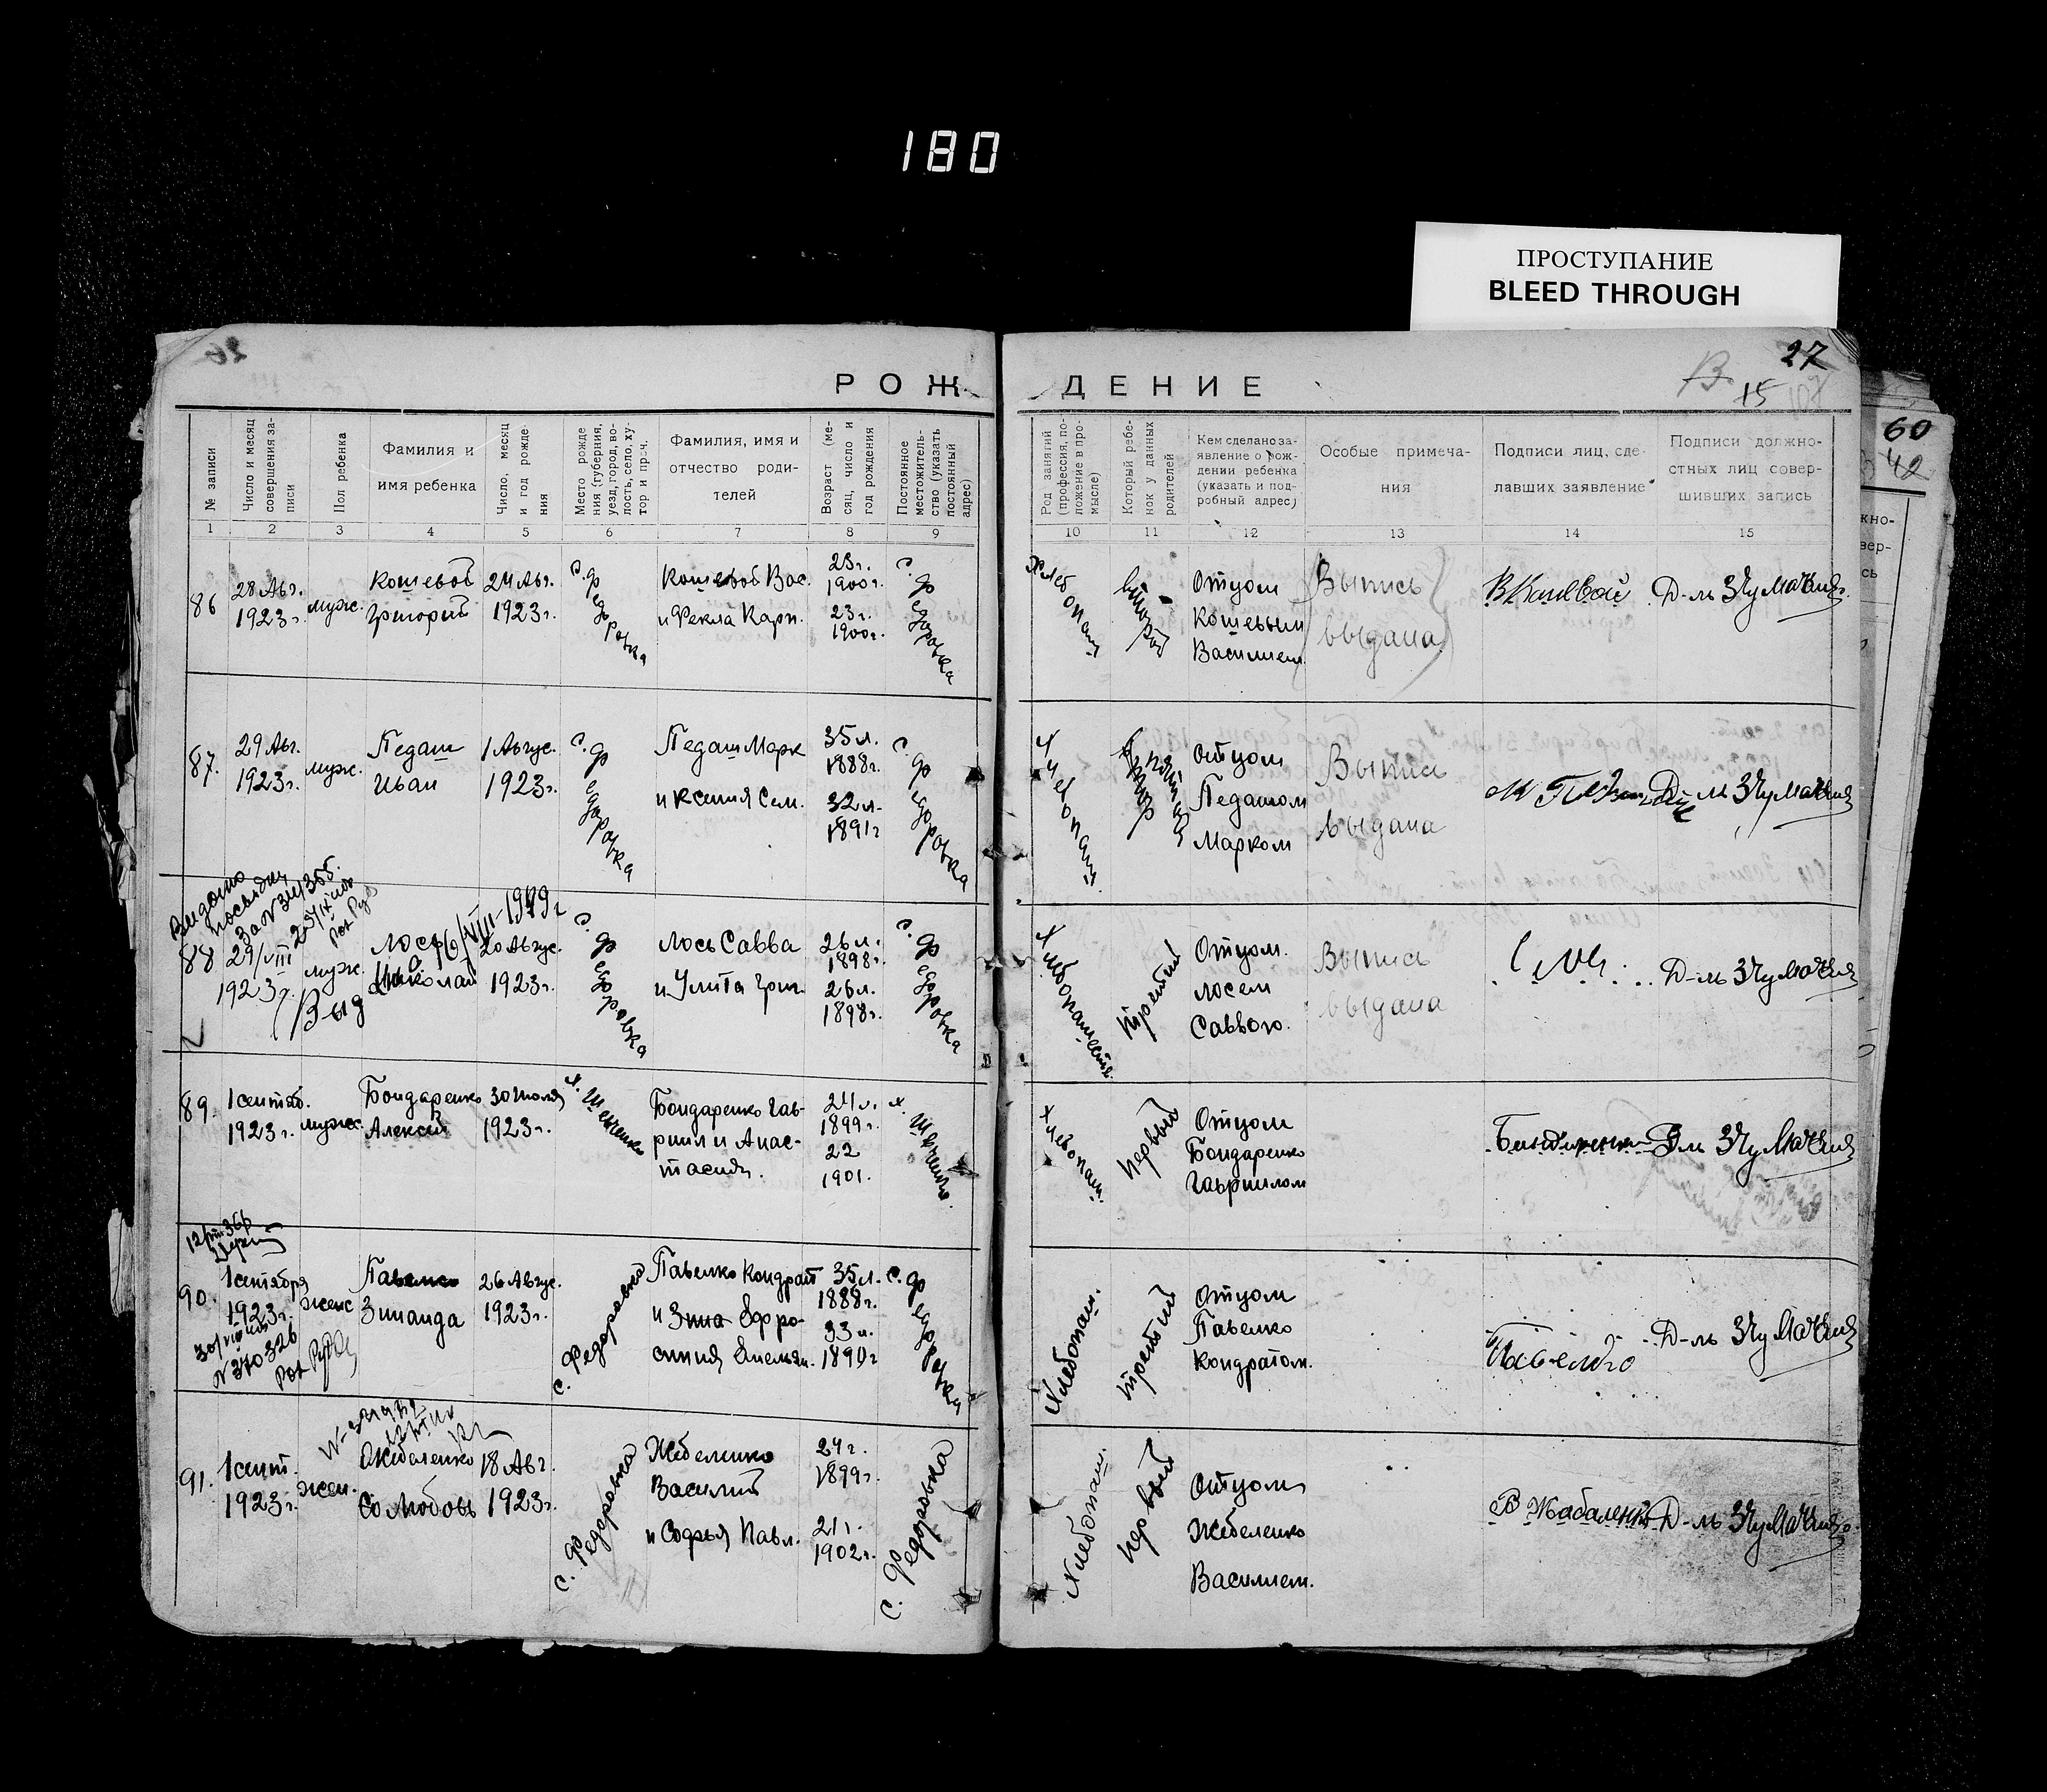 180
ПРОСТУПАНИЕ
BLEED THROUGH
26
27
15
60
42
РОЖДЕНИЕ
№ записи
Число и месяц совершения записи
Пол ребенка
Фамилия и имя ребенка
Число, месяц и год рождения
Место рождения (губерния, уезд, город, волость, село, хутор и проч.
Фамилия, имя и отчество родителей
Возраст (месяц, число и год рождения
Постоянное местожительство (указать постоянный адрес)
Род занятий (профессия, положение в промысле)
Который ребенок у данных родителей
Кем сделано заявление о рождении ребенка (указать и подробный адрес)
Особые примечания
Подписи лиц, сделавших заявление
Подписи должностных лиц совершивших запись
1 2 3 4 5 6 7 8 9 10 11 12 13 14 15
86
28 Авг.
1923 г.
муж.
Кошевой
Григорий
24 Авг.
1923 г.
с. Федоровка
Кошевой Вас.
и Фекла Карп.
23 г.
1900 г.
23 г.
1900 г.
с. Федоровка
Хлебопаш.
второй
Отцом
Кошевым
Василием
Выпись
выдана
87.
29 Авг.
1923 г.
муж.
Педаш
Иван
1 Авгус.
1923 г.
с. Федоровка
Педаш Марк
и Ксения Сем.
35 л.
1888 г.
32 л.
1891 г
с. Федоровка
Хлебопаш.
Отцом
Педашом
Марком
Выпись
выдана
88
29/VIII
1923 г.
муж.
Выд
Лось
Николай
/VIII-1949 г
20 Авгус.
1923 г.
с. Федоровка
Лось Савва
и Улита Григ.
26 л.
1898 г.
26 л.
1898 г.
с. Федоровка
Хлебопашество
третий
Отцом.
Лосем
Саввою.
Выпись
выдана
89.
1 сентяб.
1923 г.
мужс.
Бондаренко
Алексей
30 Июля
1923 г.
х. Шевченко
Бондаренко Гав-
риил и Анас-
тасия.
24 г.
1899 г.
22
1901.
х. Шевченко.
Хлебопаш.
первый
Отцом
Бондаренко
Гавриилом
90.
1 сентября
1923 г.
женс
N 370326
Павелко
Зинаида
26 Авгус.
1923 г.
с. Федоровка
Павелко Кондрат
и Зина Ефро-
синия Емельян.
35 л.
1888 г.
33 л.
1890 г
с. Федоровка
Хлебопаш.
третий
Отцом
Павелко
Кондратом.
Павелко
91.
1 сент.
1923 г.
жен.
Жебеленко
Любовь
18 Авг.
1923 г.
с. Федоровка
Жебеленко
Василий
и Софья Павл.
24 г.
1899 г.
21 г.
1902 г.
с. Федоровка
Хлебопаш.
первый
Отцом
Жебеленко
Василием.